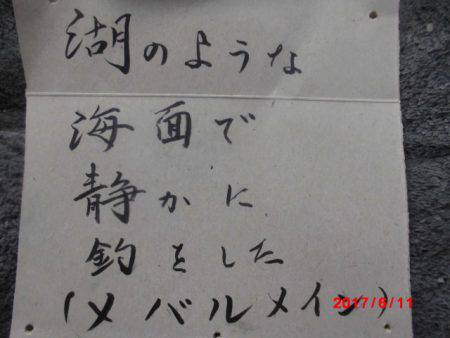 湖のような
海面で
静かに
釣をした
(メバルメイン)
2017/6/11